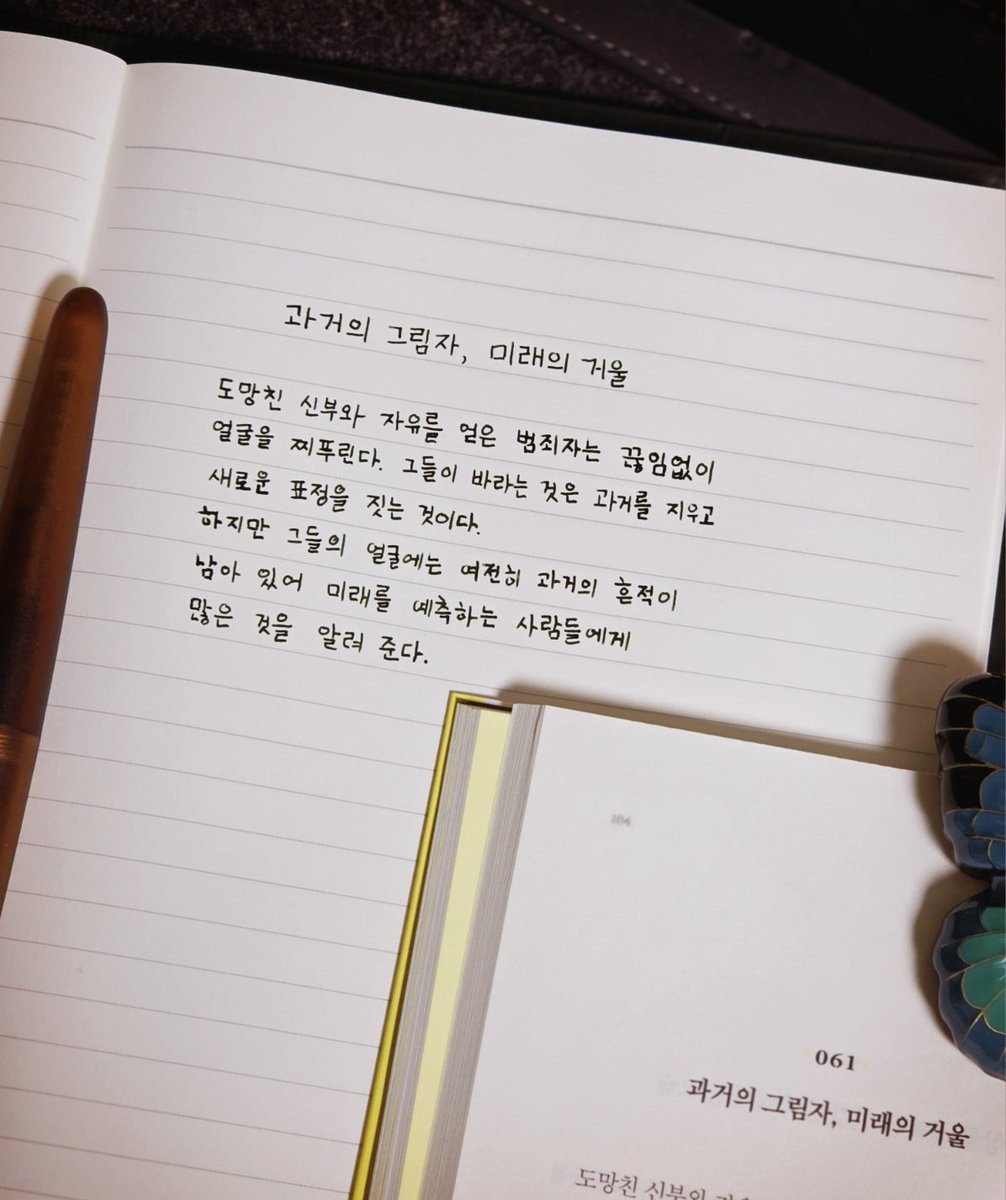 과거의 그림자, 미래의 거울
도망친 신부와 자유를 얻은 범죄자는 끊임없이
얼굴을 찌푸린다. 그들이 바라는 것은 과거를 지우고
새로운 표정을 짓는 것이다.
하지만 그들의 얼굴에는 여전히 과거의 흔적이
남아 있어 미래를 예측하는 사람들에게
많은 것을 알려 준다.
104
061
과거의 그림자, 미래의 거울
도망친 신부와